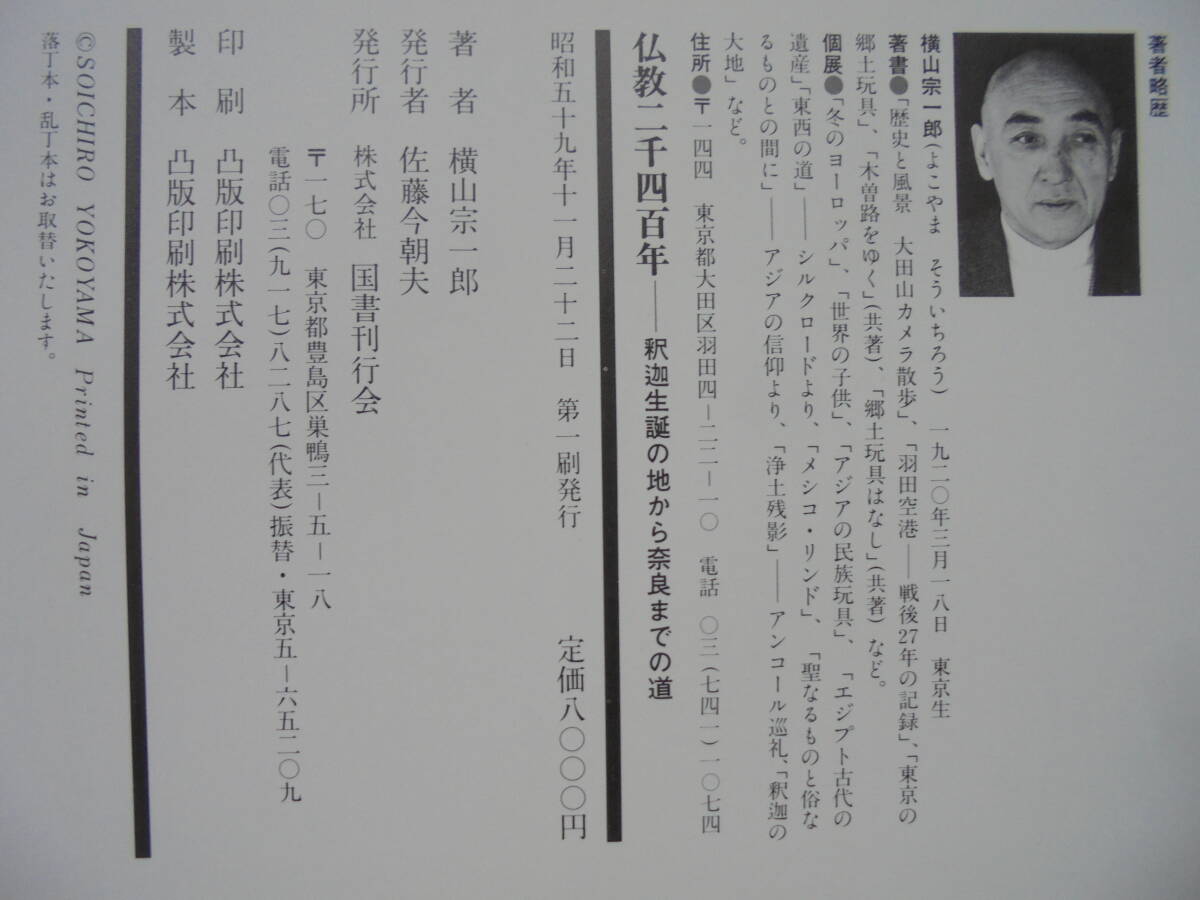 著者略歴
横山宗一郎(よこやま そういちろう) 一九二〇年三月一八日 東京生
著書●「歴史と風景 大田山カメラ散歩」、「羽田空港──戦後27年の記録」、「東京の
郷土玩具」、「木曽路をゆく」(共著)、「郷土玩具はなし」(共著)など。
個展●「冬のヨーロッパ」、「世界の子供」、「アジアの民族玩具」、「エジプト古代の
遺産」「東西の道」──シルクロードより、「メシコ・リンド」、「聖なるものと俗な
るものとの間に」──アジアの信仰より、「浄土残影」──アンコール巡礼、「釈迦の
大地」など。
住所●〒一四四 東京都大田区羽田四−二二−一〇 電話 〇三(七四一)一〇七四
仏教二千四百年──釈迦生誕の地から奈良までの道
昭和五十九年十一月二十二日 第一刷発行 定価八〇〇〇円
著者 横山宗一郎
発行者 佐藤今朝夫
発行所 株式会社 国書刊行会
〒一七〇 東京都豊島区巣鴨三−五−一八
電話〇三(九一七)八二八七(代表)振替・東京五−六五二〇九
印刷 凸版印刷株式会社
製本 凸版印刷株式会社
©SOICHIRO YOKOYAMA Printed in Japan
落丁本・乱丁本はお取替いたします。